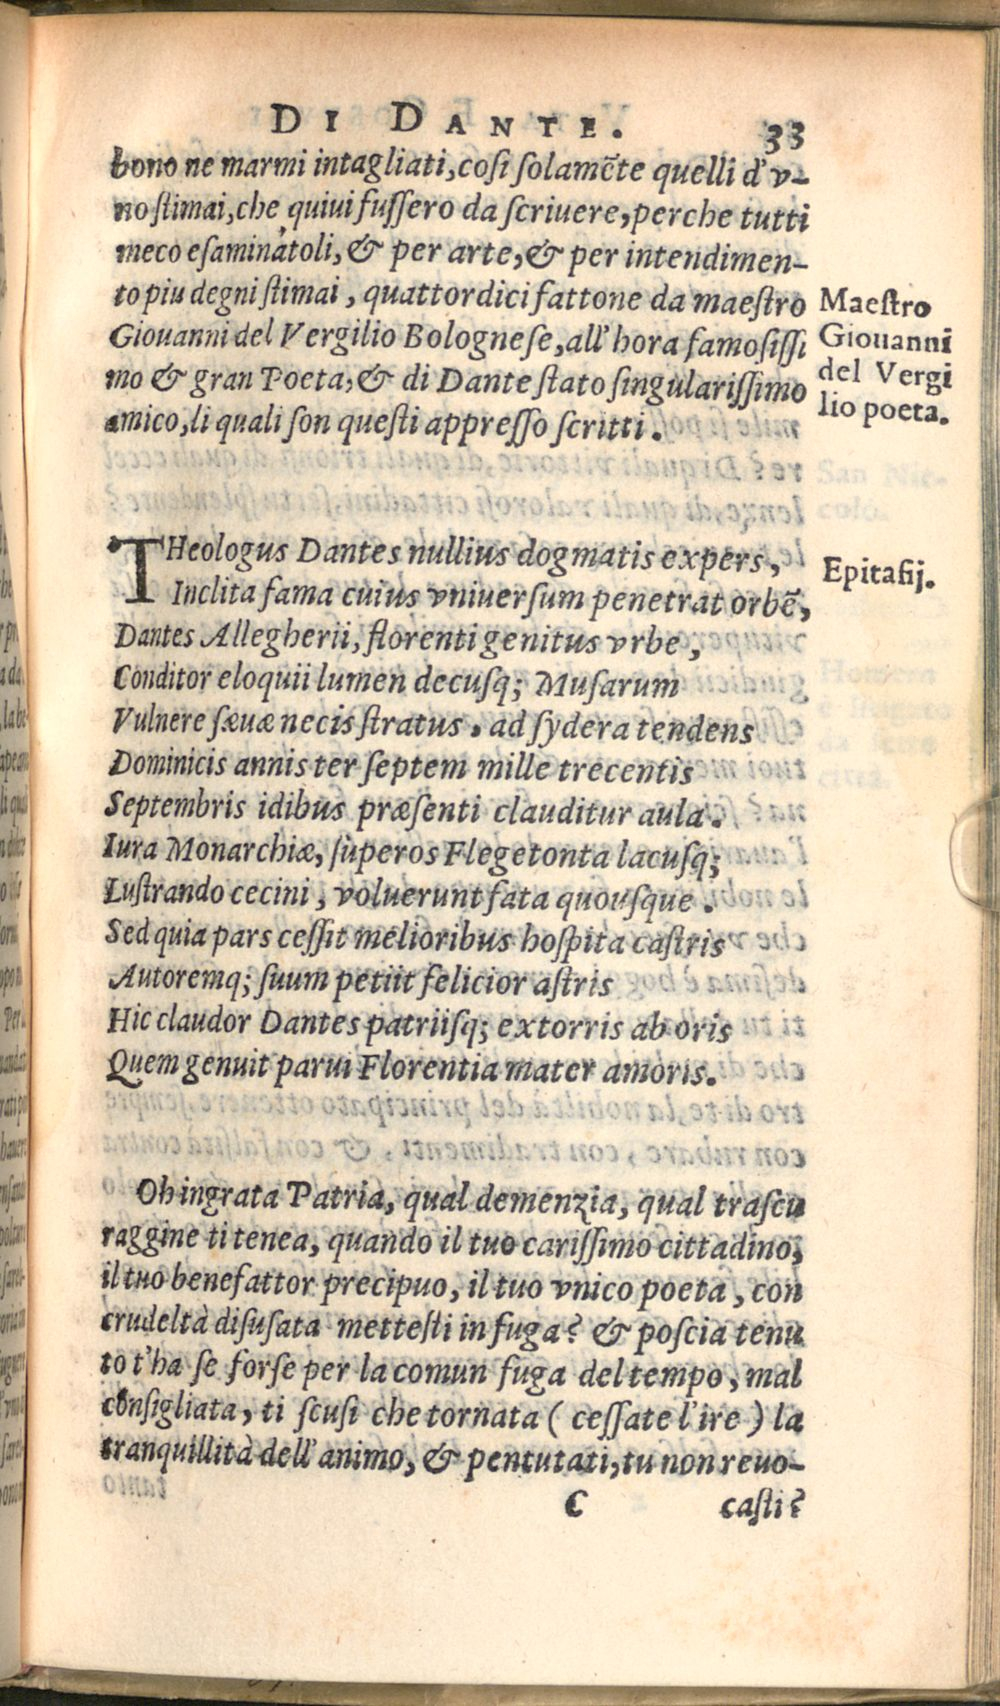 DI DANTE.
33
bono ne marmi intagliati, cosi solamẽte quelli d' v-
no stimai, che quiui fussero da scriuere, perche tutti
meco esaminatoli, & per arte, & per intendimen-
to piu degni stimai, quattordici fattone da maestro
Giouanni del Vergilio Bolognese, all' hora famosissi
mo & gran Poeta, & di Dante stato singularissimo
amico, li quali son questi appresso scritti.
Maestro
Giouanni
del Vergi
lio poeta.
THeologus Dantes nullius dogmatis expers,
Inclita fama cuius vniuersum penetrat orbẽ,
Dantes Allegherii, florenti genitus vrbe,
Conditor eloquii lumen decusq; Musarum
Vulnere sæuæ necis stratus, ad sydera tendens
Dominicis annis ter septem mille trecentis
Septembris idibus præsenti clauditur aula.
Iura Monarchiæ, superos Flegetonta lacusq;
Lustrando cecini, voluerunt fata quousque.
Sed quia pars cessit melioribus hospita castris
Autoremq; suum petiit felicior astris
Hic claudor Dantes patriisq; extorris ab oris
Quem genuit parui Florentia mater amoris.
Epitafij.
Oh ingrata Patria, qual demenzia, qual trascu
raggine ti tenea, quando il tuo carissimo cittadino,
il tuo benefattor precipuo, il tuo vnico poeta, con
crudeltà disusata mettesti in fuga? & poscia tenu
to t'ha se forse per la comun fuga del tempo, mal
consigliata, ti scusi che tornata ( cessate l'ire ) la
tranquillità dell' animo, & pentutati, tu non reuo-
C
casti?